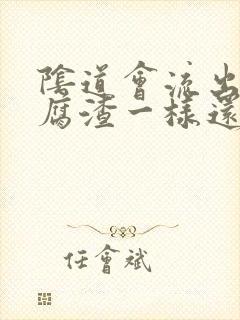 陰道會流出
腐渣一樣還
任會斌